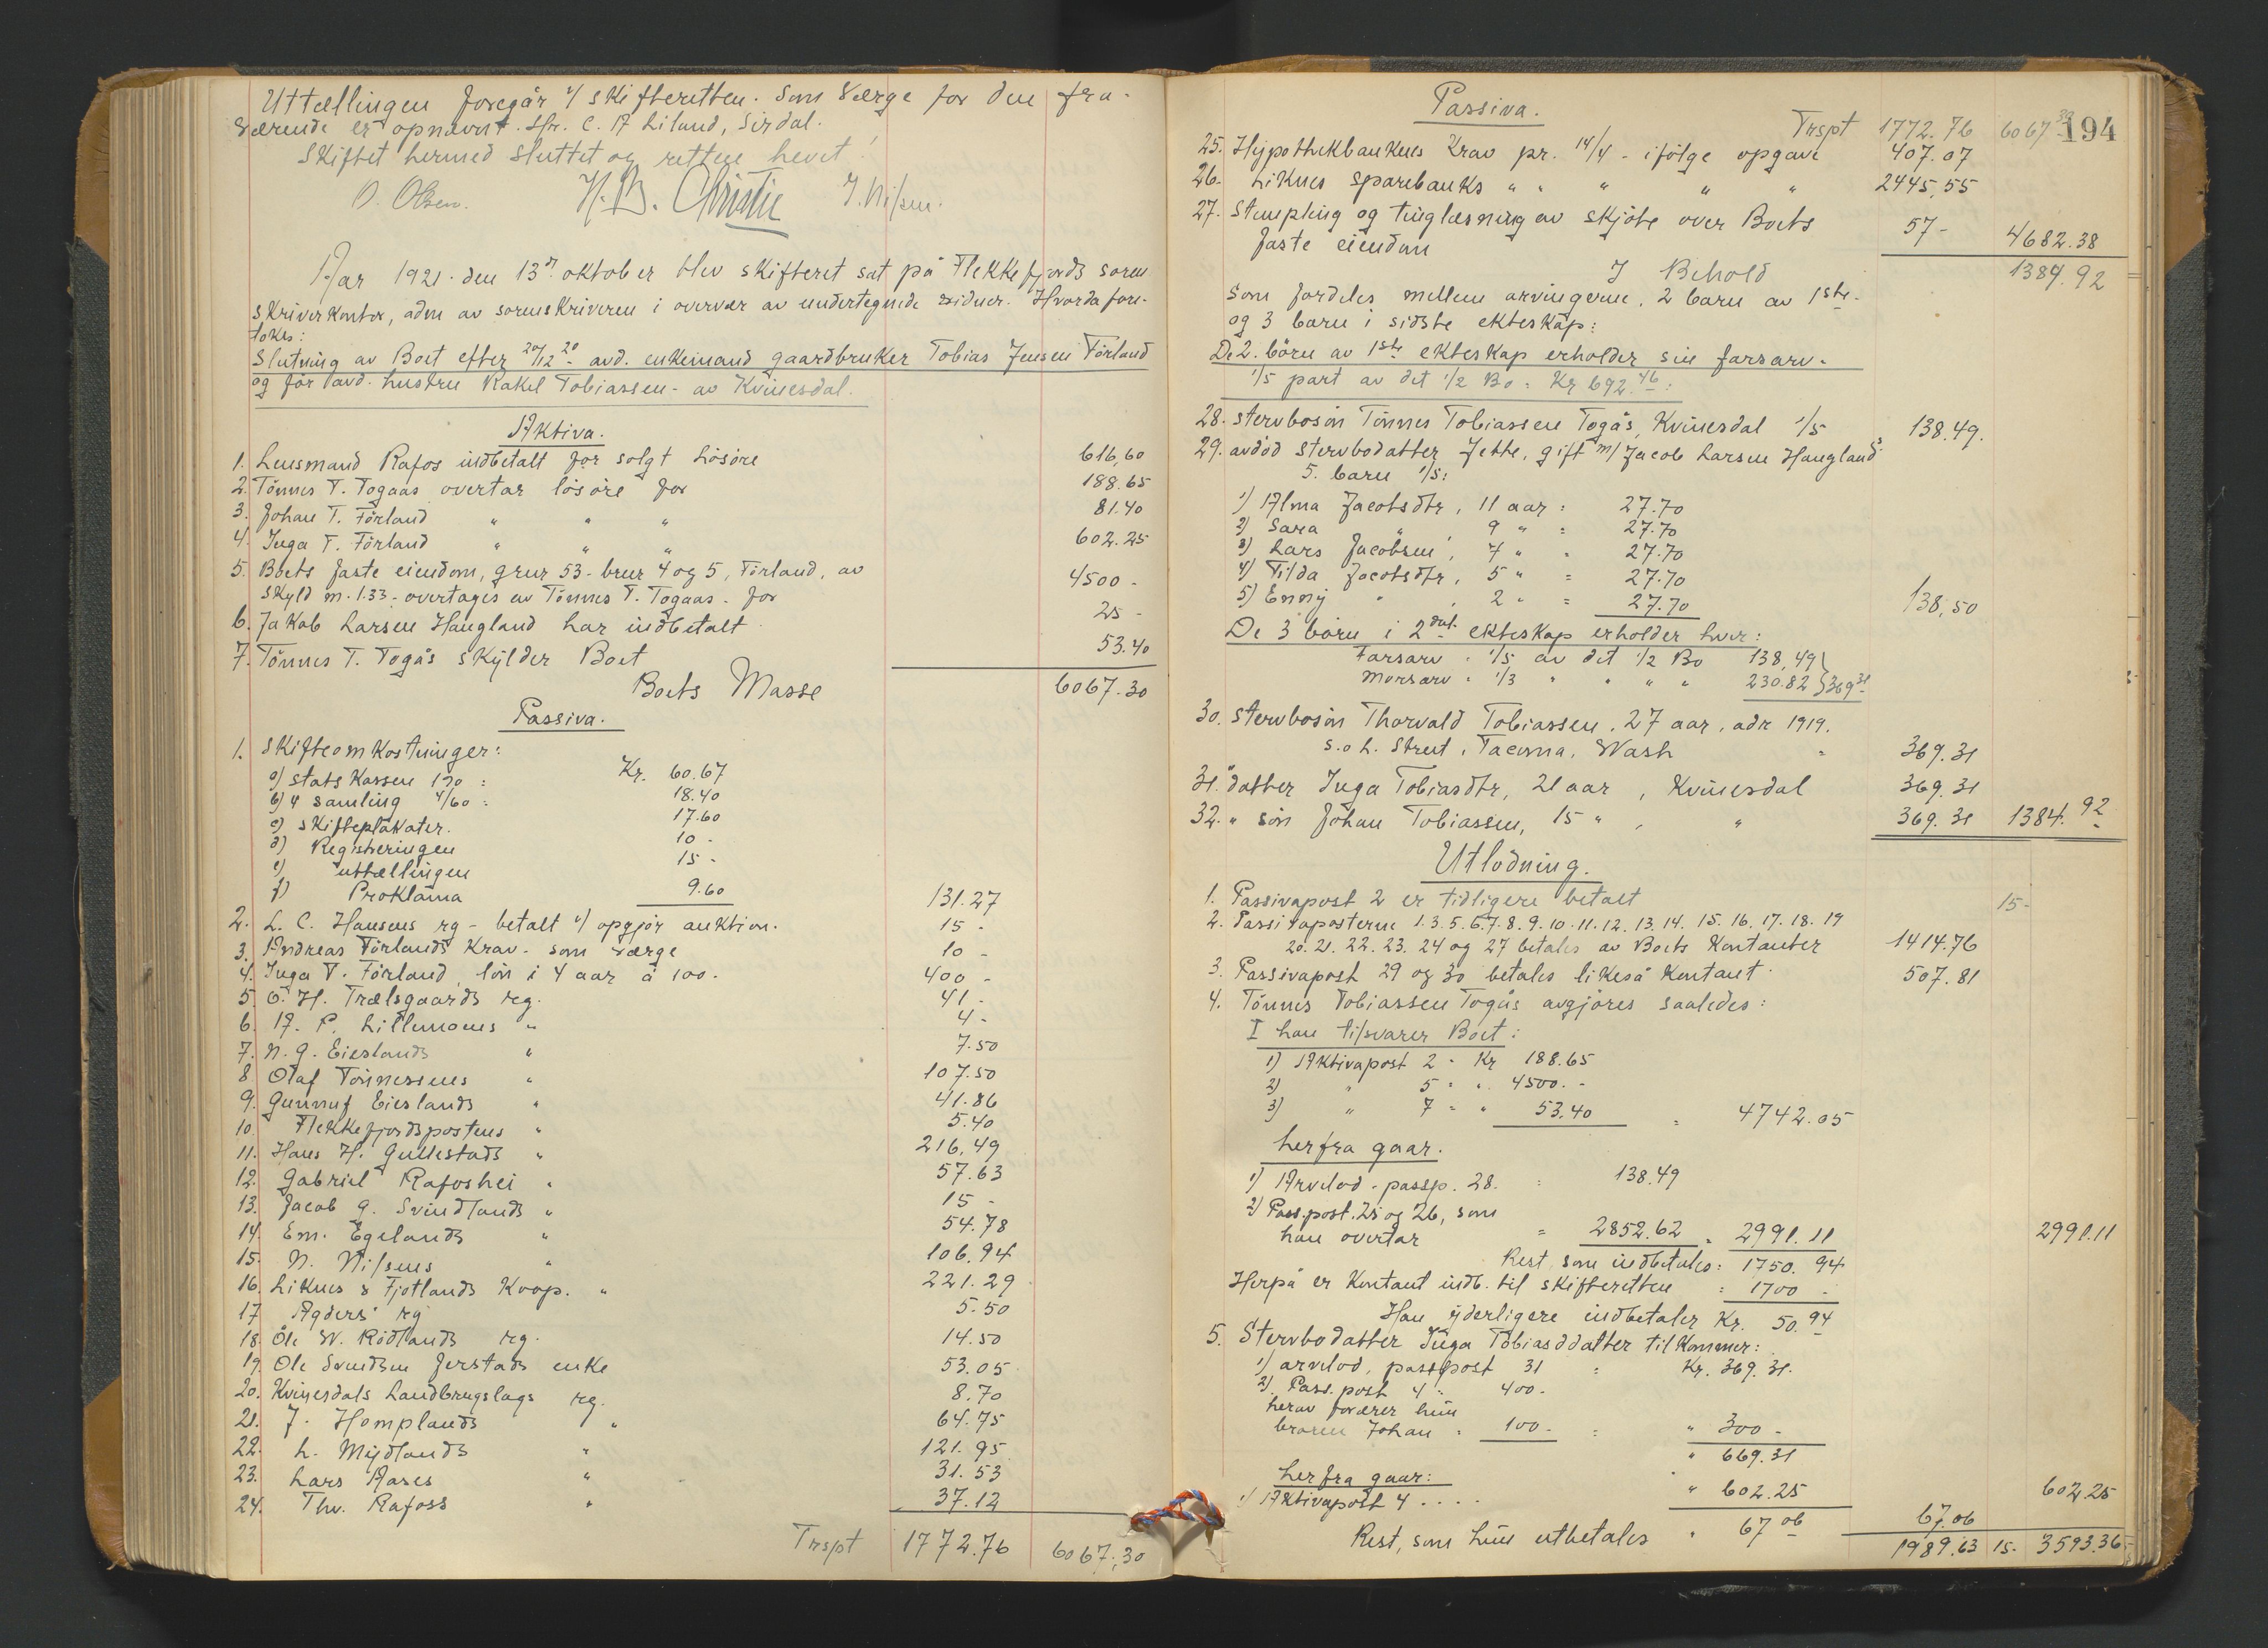 Uttællingen foregår v/ skifteretten. Som værge for den fra-
værende er opnævnt Hr. C. A Liland, Sirdal.
Skiftet hermed sluttet og retten hevet!
O. Olsen. H. B. Christie J. Nilsen.
Aar 1921 den 13de oktober blev skifteret sat på Flekkefjords soren
skriverkontor, adm av sorenskriveren i overvær av undertegnede vidner. Hvorda fore-
tokes:
Slutning av Boet efter 20/12 20 avd. enkemand gaardbruker Tobias Jensen Förland
og før avd. hustru Rakel Tobiassen - av Kvinesdal.
Aktiva.
1. Lensmand Rafos indbetalt for solgt Lösöre 616,60
2. Tönnes T. Togaas overtar lösöre for 188.65
3. Johan T. Förland " " " 81.40
4. Inga T. Förland " " " 602.25
5. Boets faste eiendom, gnr 53 - bnr 4 og 5, Förland, av
skyld m. 1.33 - overtages av Tönnes T. Togaas - for 4500 -
6. Jakob Larsen Haugland har indbetalt 25 -
7. Tönnes T. Togås skylder Boet 53.40
Boets Masse 6067.30
Passiva.
1. Skifteomkostninger:
a) Statskassen 1% = Kr. 60.67
b) 4 samling 4/60 = 18.40
c) Skifteplakater. 17.60
d) Registreringen 10 -
e) uttællingen 15 -
f) Proklama 9.60 131.27
2. L. C. Hansens rg - betalt v/ opgjör auktion. 15 -
3. Andreas Förlands Krav - som værge 10 -
4. Inga T. Förland, lön i 4 aar à 100 - 400 -
5. O. H. Trælsgaards rg. 41 -
6. A. P. Lillemoens " 4 -
7. N. G. Eieslands " 7.50
8. Olaf Tönnessens " 107.50
9. Gunnuf Eieslands " 41.86
10. Flekkefjordspostens " 5.40
11. Hans H. Gullestads " 216,49
12. Gabriel Rafoshei " 57.63
13. Jacob G. Svindlands " 15 -
14. Em. Egelands " 54.78
15. N. Nilsens " 106.94
16. Liknes & Fjotlands Koop. " 221.29
17 Agders rg 5.50
18. Ole W. Rödlands rg. 14.50
19. Ole Svendsen Jerstads enke 53.05
20. Kvinesdals Landbrugslags rg. 8.70
21. J. Homplands " 64.75
22. L. Mydlands " 121.95
23. Lars Aases " 31.53
24. Thv. Rafoss " 37.12
Trspt 1772.76 6067,30
Passiva. 194
Trspt 1772.76 6067 30
25. Hypothekbankens Krav pr. 14/4 - ifölge opgave 407.07
26. Liknes Sparebanks " " " " " 2445,55
27. Stempling og tinglæsning av skjöte over Boets
faste eiendom 57 - 4682.38
I Behold 1384.92
som fordeles mellem arvingerne, 2 barn av 1ste -
og 3 barn i sidste ekteskap:
De 2. börn av 1ste ekteskap erholder sin farsarv -
1/5 part av det 1/2 Bo = Kr 692.46:
28. Stervbosön Tönnes Tobiassen Togås, Kvinesdal 1/5 138.49.
29. avdöd Stervbodatter Jette, gift m/ Jacob Larsen Haugland's
5. barn 1/5:
1) Alma Jacobsdtr, 11 aar = 27.70
2) Sara " , 9 " = 27.70
3) Lars Jacobsen, 7 " = 27.70
4) Tilda Jacobsdtr, 5 " = 27.70
5) Enny " , 2 " = 27.70 138,50
De 3 börn i 2det ekteskap erholder hver:
Farsarv = 1/5 av det 1/2 Bo 138,49
Morsarv = 1/3 " " " " 230.82 } 369 31
30. Stervbosön Thorvald Tobiassen, 27 aar, adr 1919.
S.o L. Street, Tacoma, Wash " 369.31
31. datter Inga Tobiasdtr, 21 aar, Kvinesdal 369.31
32. " sön Johan Tobiassen, 15 " , " 369.31 1384.92
Utlodning.
1. Passivapost 2 er tidligere betalt 15 -
2. Passivaposterne 1. 3. 5. 6. 7. 8. 9. 10. 11. 12. 13. 14. 15. 16. 17. 18. 19
20. 21. 22. 23. 24 og 27 betales av Boets Kontanter 1414.76
3. Passivapost 29 og 30 betales likeså Kontant. 507.81
4. Tönnes Tobiassen Togås avgjöres saaledes:
I han tilsvarer Boet:
1) Aktivapost 2 = Kr 188.65
2) " 5 = " 4500. -
3) " 7 = " 53.40 = 4742.05
herfra gaar.
1) Arvelod - passp. 28. = 138.49
2) Pass.post. 25 og 26, som
han overtar = 2852.62 = 2991.11 2991.11
Rest, som indbetales: 1750.94
Herpå er Kontant indb. til skifteretten = 1700 -
Han yderligere indbetaler Kr. 50.94
5. Stervbodatter Inga Tobiasddatter tilkommer:
1) arvelod, passpost 31 = Kr. 369.31.
2) Pass.post 4 = 400 -
herav forærer hun
broren Johan = 100 - = " 300 -
" 669.31
herfra gaar:
1) Aktivapost 4 . . . . " 602.25 602.25
Rest, som hun utbetales " 67 06 67.06
1989.63 15 - 3593.36